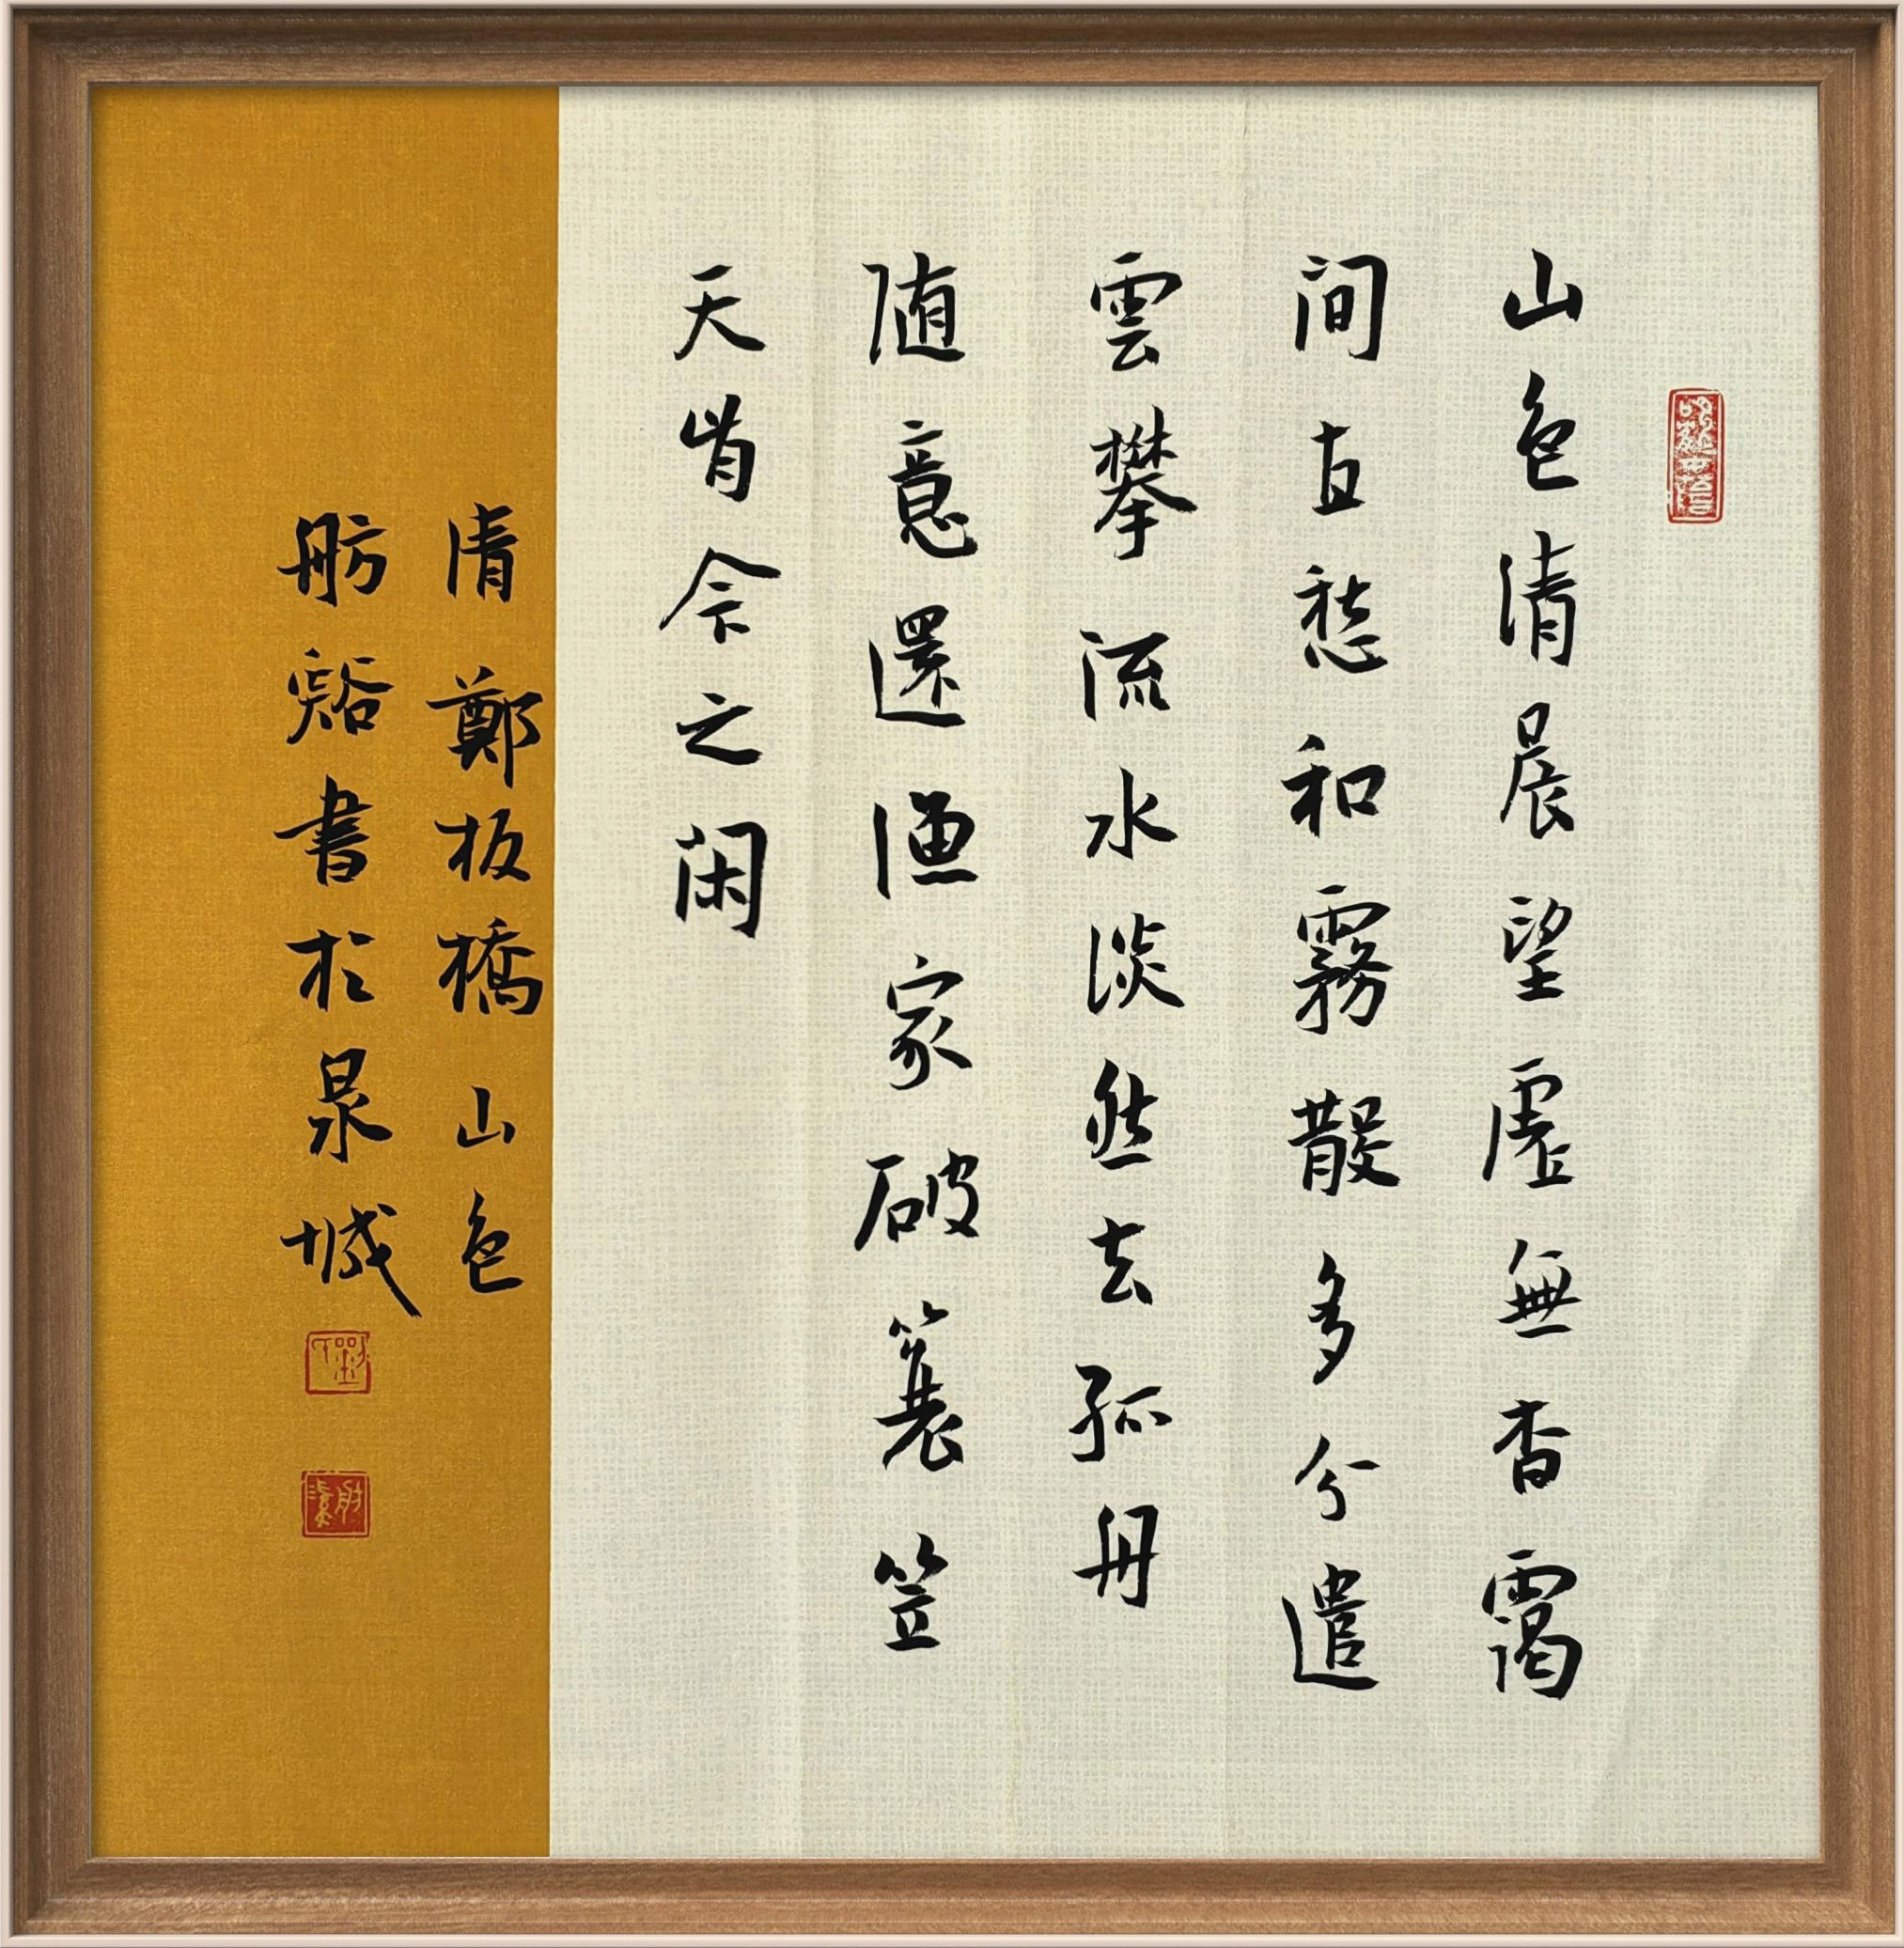 山色清晨望虛無杳霭
间直愁和霧散多分遣
雲攀流水淡然去孤舟
随意還漁家破簑笠
天肯令之闲
清鄭板橋山色
舫谿書於泉城